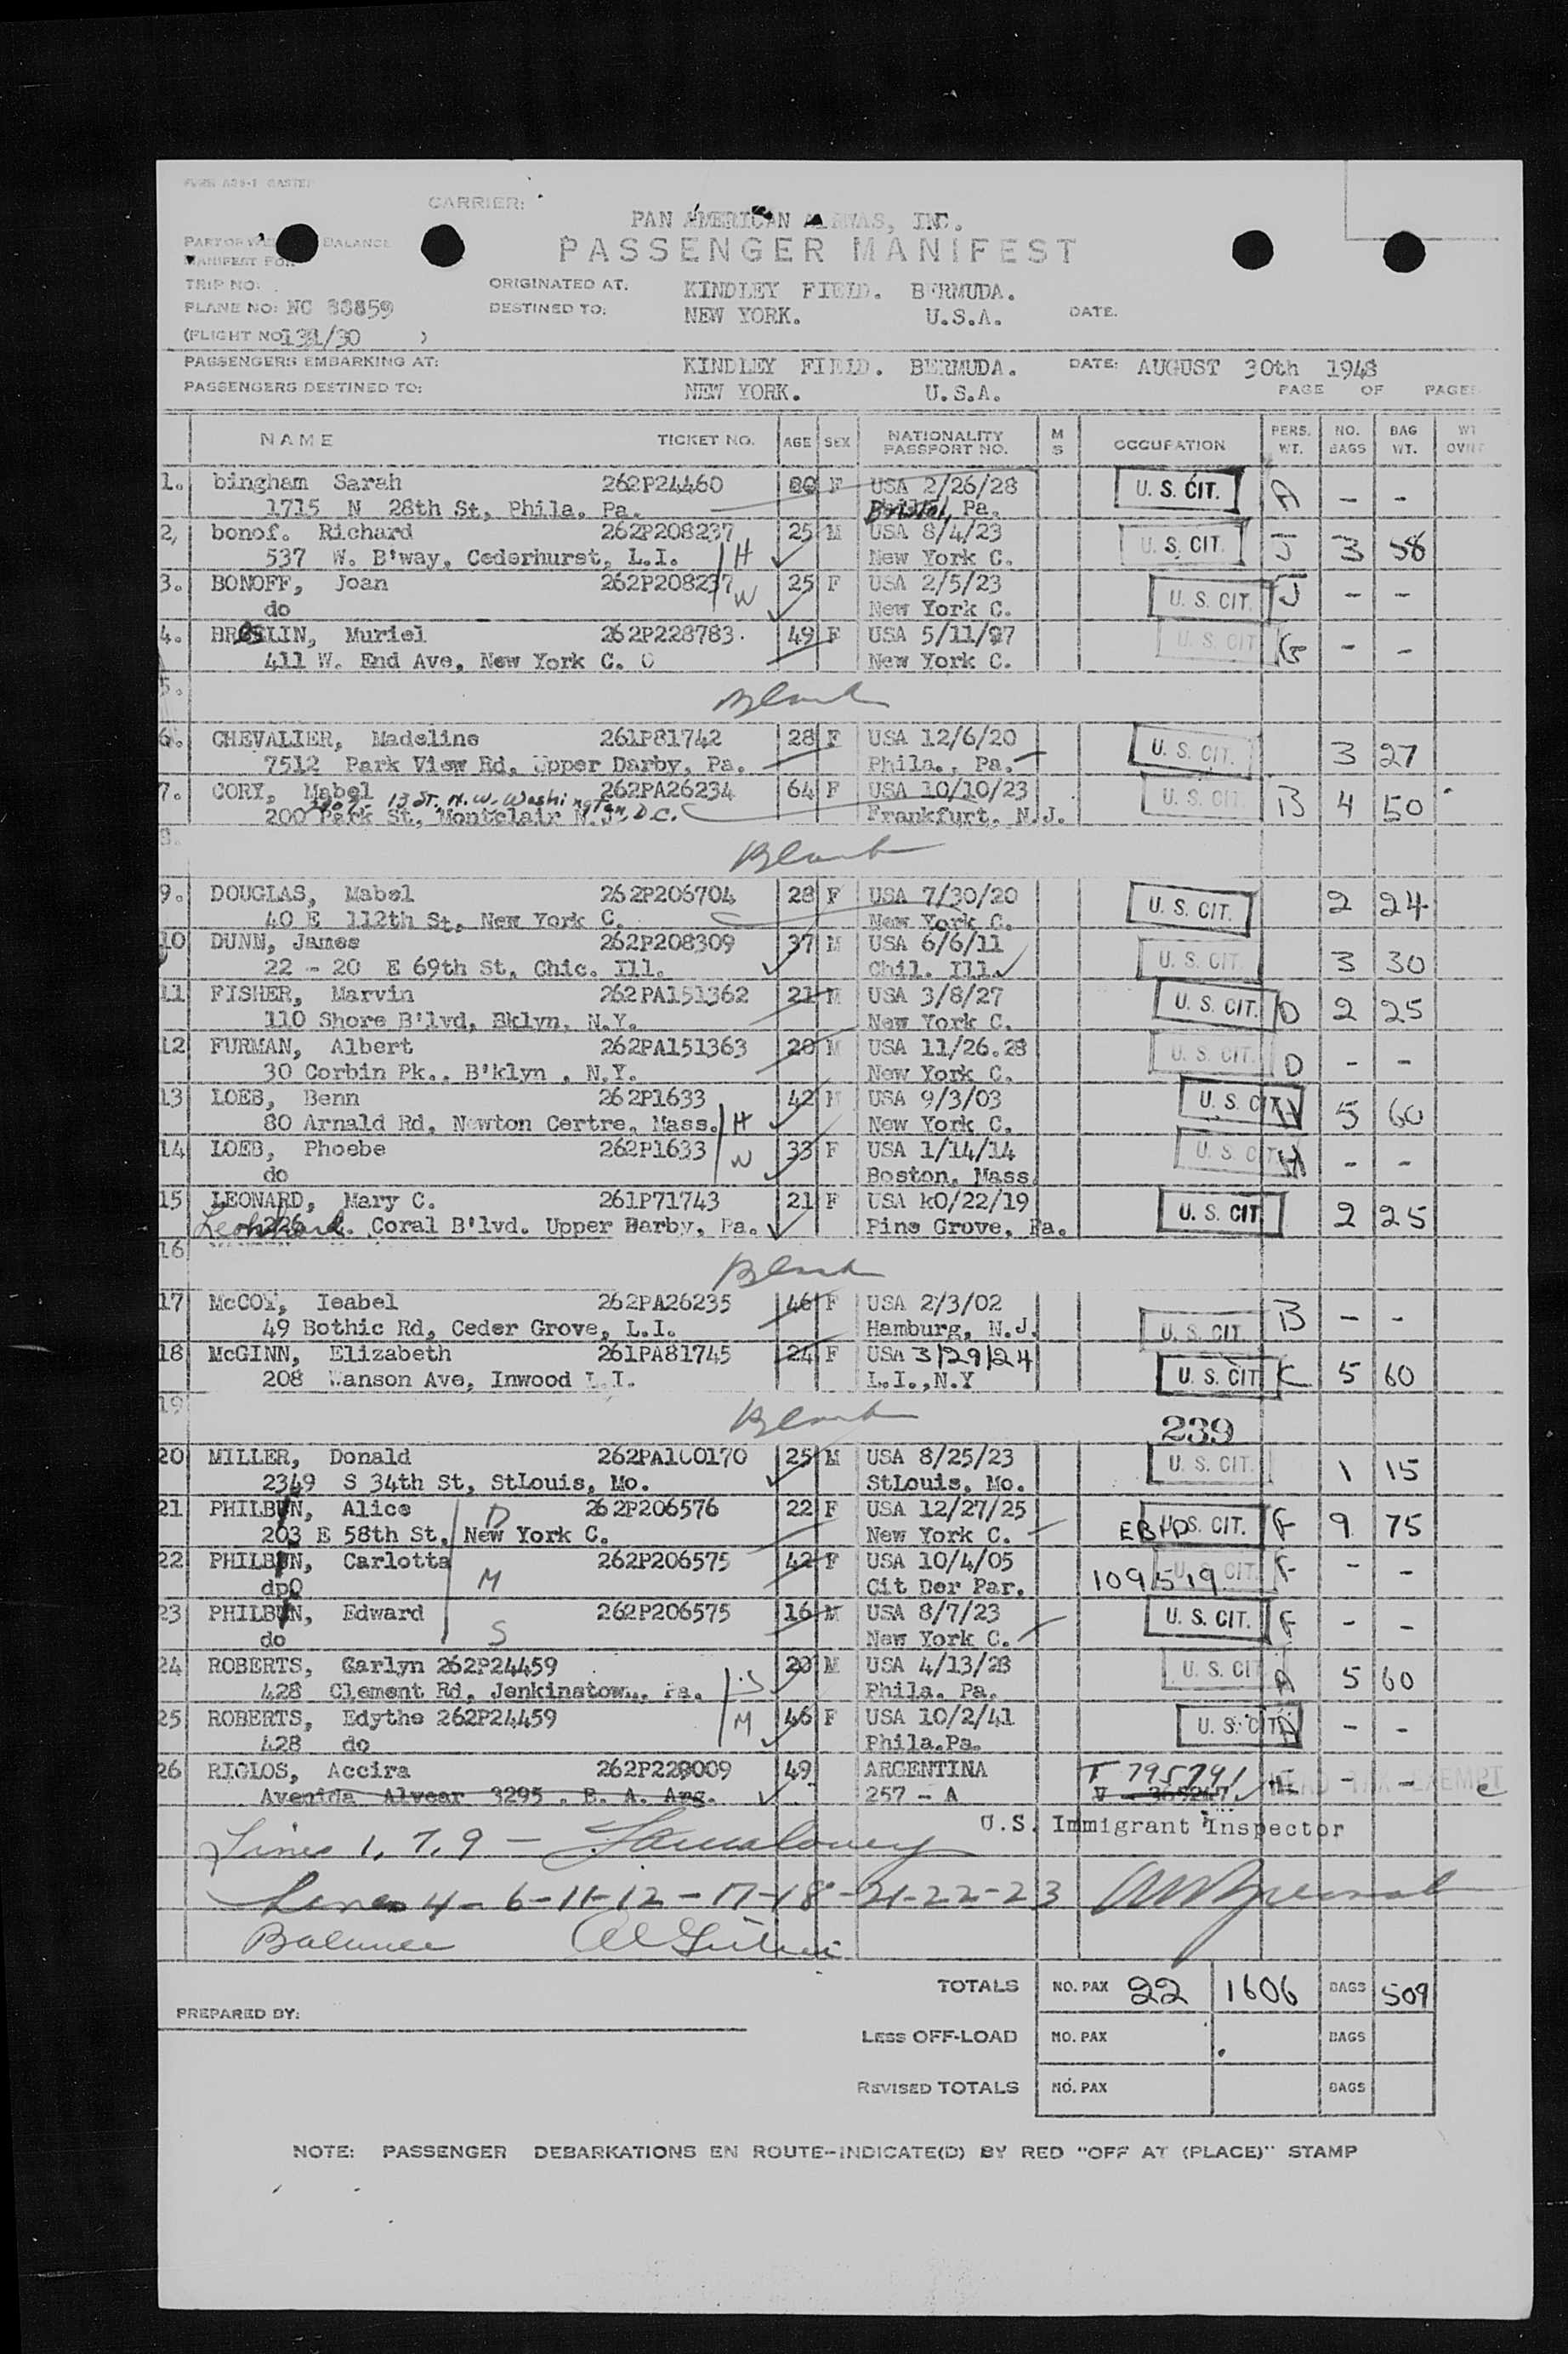 CARRIER:
PAN AMERICAN
PASSENGER MANIFEST
MANIFEST FOR
TRIP NO:
ORIGINATED AT. KINDLEY FIELD. BERMUDA.
PLANE NO: NC 88859 DESTINED TO: NEW YORK. U.S.A. DATE.
(FLIGHT NO 131/30 )
PASSENGERS EMBARKING AT: KINDLEY FIELD. BERMUDA. DATE: AUGUST 30th 1948
PASSENGERS DESTINED TO: NEW YORK. U.S.A. PAGE OF PAGES
NAME TICKET NO. AGE SEX NATIONALITY PASSPORT NO. M S OCCUPATION PERS. WT. NO. BAGS BAG WT.
1. bingham Sarah 262P24460 F USA 2/26/28 U. S. CIT. A - -
1715 N 28th St, Phila. Pa. Bristol, Pa.
2, bonof. Richard 262P208237 25 M USA 8/4/23 U. S. CIT. J 3 58
537 W. B'way, Cederhurst, L.I. H New York C.
3. BONOFF, Joan 262P208237 25 F USA 2/5/23 U. S. CIT. J - -
do W New York C.
4. BRESLIN, Muriel 262P228783. 49 F USA 5/11/97 U. S. CIT G - -
411 W. End Ave, New York C. New York C.
5. Blank
6. CHEVALIER, Madeline 261P81742 28 F USA 12/6/20 U. S. CIT. 3 27
7512 Park View Rd, Upper Darby, Pa. Phila., Pa.
7. CORY, Mabel 262PA26234 64 F USA 10/10/23 U. S. CIT. B 4 50
13 ST. N.W. Washington D.C.
200 Park St, Montclair N.J. Frankfurt, N.J.
8. Blank
9. DOUGLAS, Mabel 262P206704 28 F USA 7/30/20 U. S. CIT. 2 24
40 E 112th St, New York C. New York C.
10 DUNN, James 262P208309 37 M USA 6/6/11 U. S. CIT. 3 30
22 - 20 E 69th St, Chic. Ill. Chil. Ill.
11 FISHER, Marvin 262PA151362 21 M USA 3/8/27 U. S. CIT. D 2 25
110 Shore B'lvd, Bklyn, N.Y. New York C.
12 FURMAN, Albert 262PA151363 20 M USA 11/26.28 U. S. CIT. D - -
30 Corbin Pk.. B'klyn . N.Y. New York C.
13 LOEB, Benn 262P1633 42 M USA 9/3/03 U. S. CIT H 5 60
80 Arnald Rd, Newton Certre, Mass. H New York C.
14 LOEB, Phoebe 262P1633 33 F USA 1/14/14 U. S. CIT H - -
do W Boston, Mass.
15 LEONARD, Mary C. 261P71743 21 F USA k0/22/19 U. S. CIT 2 25
Coral B'lvd. Upper Darby, Pa. Pine Grove, Pa.
16 Blank
17 McCOY, Ieabel 262PA26235 46 F USA 2/3/02 U. S. CIT. B - -
49 Bothic Rd, Ceder Grove, L.I. Hamburg, N.J.
18 McGINN, Elizabeth 261PA81745 24 F USA 3/29/24 U. S. CIT K 5 60
208 Wanson Ave, Inwood L.I. L.I.,N.Y
19 Blank
239
20 MILLER, Donald 262PA100170 25 M USA 8/25/23 U. S. CIT. 1 15
2349 S 34th St, StLouis, Mo. StLouis, Mo.
21 PHILBIN, Alice D 262P206576 22 F USA 12/27/25 U. S. CIT. F 9 75
203 E 58th St, New York C. New York C.
22 PHILBIN, Carlotta M 262P206575 42 F USA 10/4/05 109519 U. S. CIT. F - -
Cit Der Par.
23 PHILBIN, Edward 262P206575 16 M USA 8/7/23 U. S. CIT. F - -
do S New York C.
24 ROBERTS, Carlyn 262P24459 20 M USA 4/13/28 U. S. CIT A 5 60
428 Clement Rd, Jenkinstown, Pa. S Phila. Pa.
25 ROBERTS, Edythe 262P24459 46 F USA 10/2/41 U. S. CIT A - -
428 do M Phila.Pa.
26 RIGLOS, Accira 262P228009 49 ARGENTINA T 795791 - - HEAD TAX EXEMPT
Avenida Alvear 3295 . B. A. Arg. 257 - A
U.S. Immigrant Inspector
Lines 1, 7, 9 -
Lines 4-6-11-12-17-18-21-22-23
Balance
TOTALS NO. PAX 22 1606 BAGS 509
PREPARED BY:
LESS OFF-LOAD NO. PAX BAGS
REVISED TOTALS NO. PAX BAGS
NOTE: PASSENGER DEBARKATIONS EN ROUTE-INDICATE(D) BY RED "OFF AT (PLACE)" STAMP